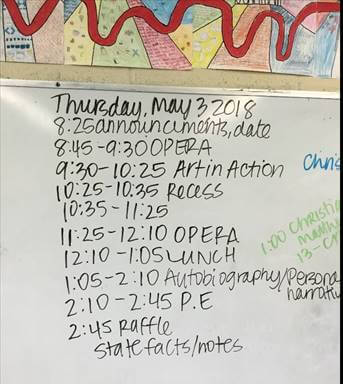 Thursday, May 3 2018
8:25 announcements, date
8:45-9:30 OPERA
9:30-10:25 Art in Action
Chris
10:25-10:35 Recess
10:35-11:25
11:25-12:10 OPERA
1:00 Christi
12:10-1:05 LUNCH
13-
1:05-2:10 Autobiography/Persona
narrativ
2:10-2:45 P.E
2:45 Raffle
state facts/notes